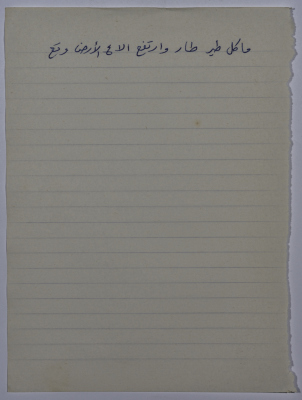 ما كل طير طار وارتفع الا ع الأرض وقع